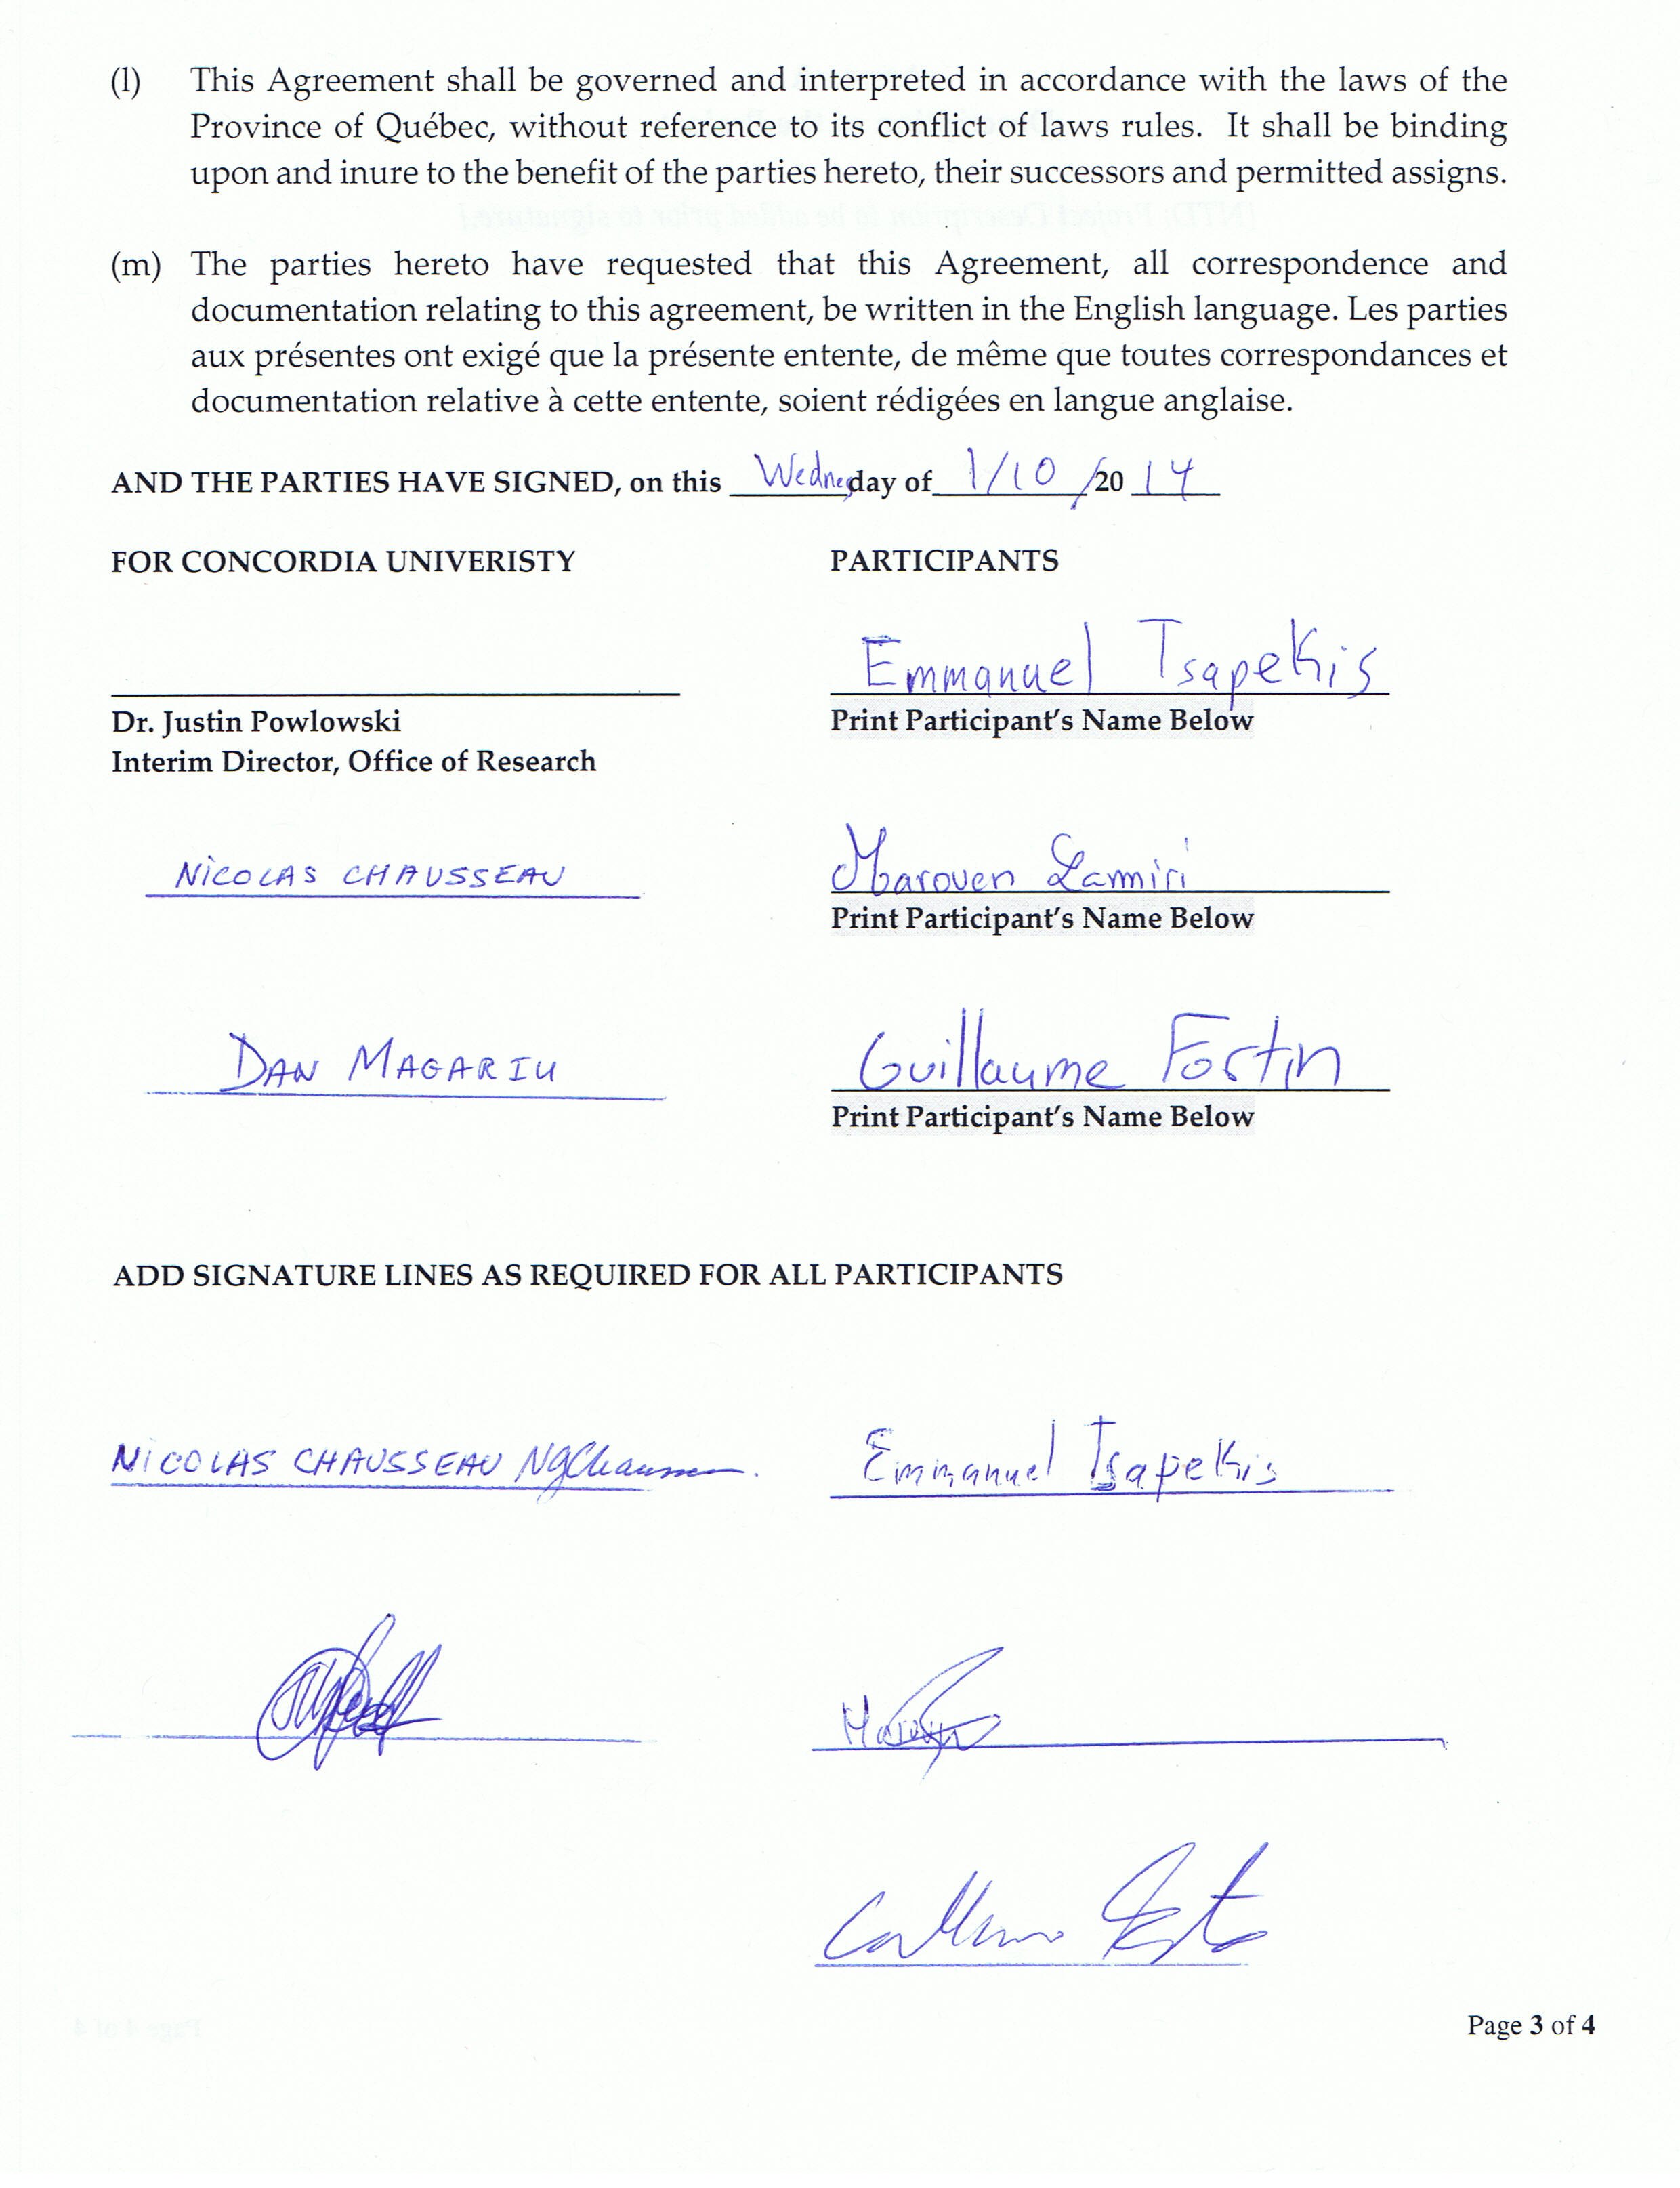 (l) This Agreement shall be governed and interpreted in accordance with the laws of the
Province of Québec, without reference to its conflict of laws rules. It shall be binding
upon and inure to the benefit of the parties hereto, their successors and permitted assigns.
(m) The parties hereto have requested that this Agreement, all correspondence and
documentation relating to this agreement, be written in the English language. Les parties
aux présentes ont exigé que la présente entente, de même que toutes correspondances et
documentation relative à cette entente, soient rédigées en langue anglaise.
AND THE PARTIES HAVE SIGNED, on this Wednesday of 1/10/2014
FOR CONCORDIA UNIVERISTY PARTICIPANTS
Emmanuel Tsapekis
Dr. Justin Powlowski Print Participant's Name Below
Interim Director, Office of Research
NICOLAS CHAUSSEAU Marouen Lamiri
Print Participant's Name Below
DAN MAGARIU Guillaume Fortin
Print Participant's Name Below
ADD SIGNATURE LINES AS REQUIRED FOR ALL PARTICIPANTS
NICOLAS CHAUSSEAU Emmanuel Tsapekis
Page 3 of 4